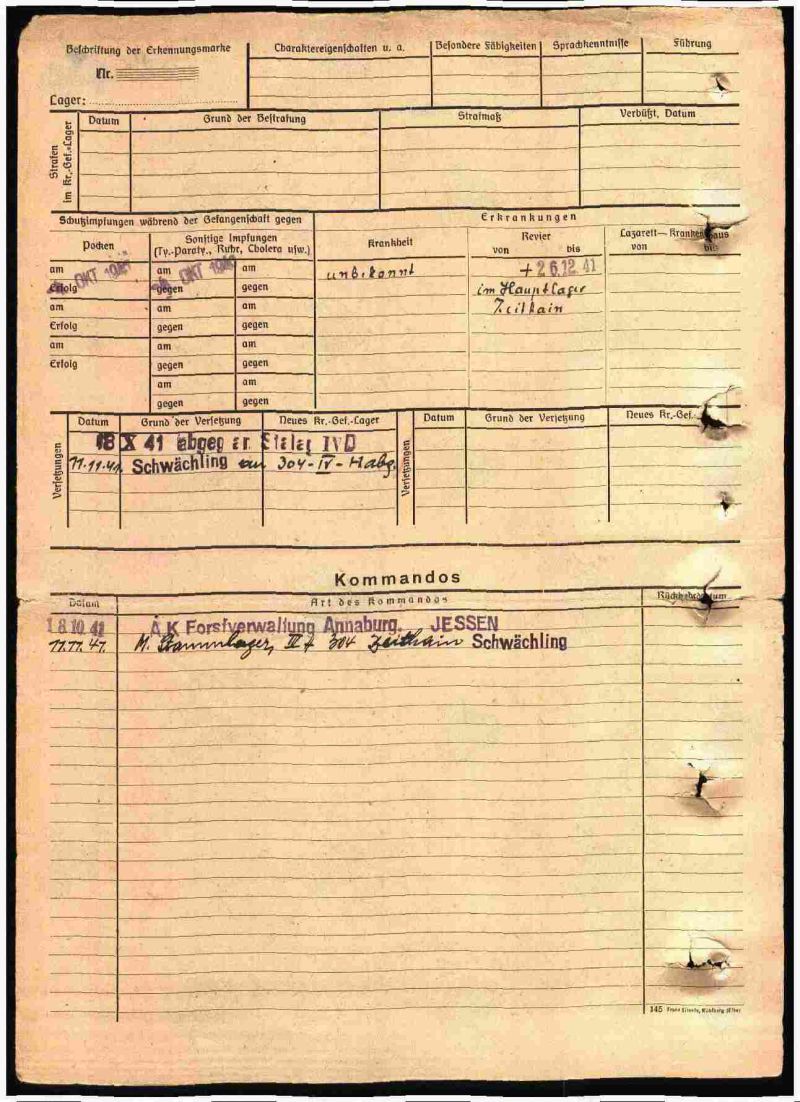 Beschriftung der Erkennungsmarke
Nr.
Lager:
Charaktereigenschaften u. a.
Besondere Fähigkeiten
Sprachkenntnisse
Führung
Strafen im Kr.-Gef.-Lager
Datum
Grund der Bestrafung
Strafmaß
Verbüßt, Datum
Schutzimpfungen während der Gefangenschaft gegen
Erkrankungen
Pocken
Sonstige Impfungen
(Ty.-Paraty., Ruhr, Cholera usw.)
Krankheit
Revier
von bis
Lazarett-Krankenhaus
von bis
am am am
OKT 1941 OKT 1941
Erfolg gegen gegen
unbekannt
+ 26.12.41
im Hauptlager
Zeithain
am am am
Erfolg gegen gegen
am am am
Erfolg gegen gegen
am am
gegen gegen
Versetzungen
Datum Grund der Versetzung Neues Kr.-Gef.-Lager
18 X 41 abgeg an Stalag IVD
11.11.41. Schwächling an 304-IV-H abg.
Versetzungen
Datum Grund der Versetzung Neues Kr.-Gef.
Kommandos
Datum Art des Kommandos
18 10 41 A K Forstverwaltung Annaburg. JESSEN
11.11.41. M. Stammlager, 304 Zeithain Schwächling
145